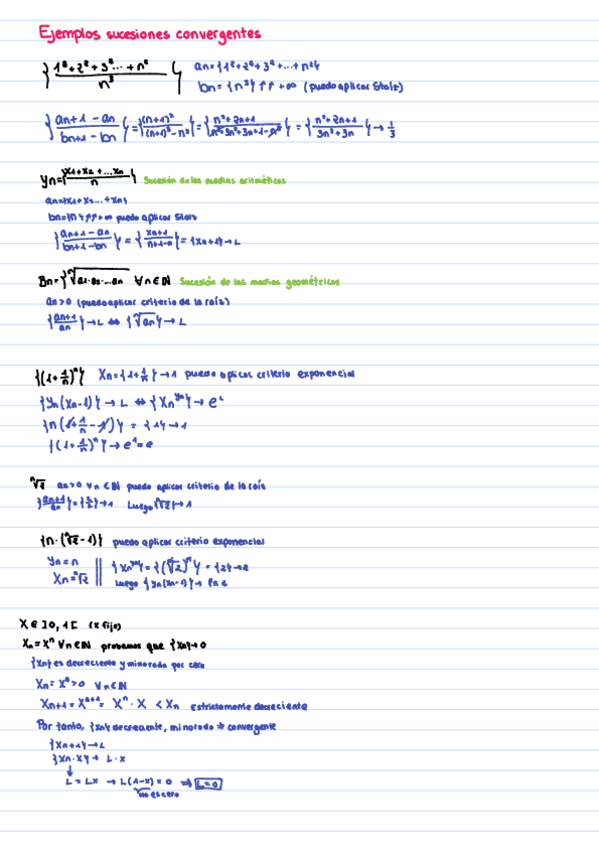 Ejemplos sucesiones convergentes
{ 1² + 2² + 3² ... + n² / n³ } an = {1² + 2² + 3² + ... + n²}
bn = {n³} ↑↑ +∞ (puedo aplicar Stolz)
{ an+1 - an / bn+1 - bn } = { (n+1)² / (n+1)³ - n³ } = { n² + 2n+1 / n³ + 3n² + 3n+1 - n³ } = { n² + 2n+1 / 3n² + 3n } → 1/3
yn = { x1 + x2 + ... xn / n } Sucesión de las medias aritméticas
an = {x1 + x2 ... + xn}
bn = {n} ↑↑ +∞ puedo aplicar Stolz
{ an+1 - an / bn+1 - bn } = { xn+1 / n+1-n } = {xn+1} → L
Bn = { ⁿ√a1·a2·...an } ∀n∈ℕ Sucesión de las medias geométricas
an>0 (puedo aplicar criterio de la raíz)
{ an+1 / an } → L ⇔ { ⁿ√an } → L
{(1+1/n)ⁿ} Xn = {1+1/n} → 1 puedo aplicar criterio exponencial
{yn(xn-1)} → L ⇔ {Xn^yn} → e^L
{n(1+1/n-1)} = {1} → 1
{(1+1/n)ⁿ} → e¹ = e
ⁿ√2 an>0 ∀n∈ℕ puedo aplicar criterio de la raíz
{ an+1 / an } = { 2/2 } → 1 Luego {ⁿ√2} → 1
{n·(ⁿ√2-1)} puedo aplicar criterio exponencial
yn = n {Xn^yn} = {(ⁿ√2)ⁿ} = {2} → 2
Xn = ⁿ√2 Luego {yn(xn-1)} → ln 2
X ∈ ]0,1[ (x fijo)
Xn = Xⁿ ∀n∈ℕ probamos que {Xn} → 0
{Xn} es decreciente y minorada por cero
Xn = Xⁿ > 0 ∀n∈ℕ
Xn+1 = Xⁿ⁺¹ = Xⁿ · X < Xn estrictamente decreciente
Por tanto, {xn} decreciente, minorado ⇒ convergente
{Xn+1} → L
{Xn·X} → L·x
↓
L = Lx → L(1-x) = 0 ⇒ L=0
no es cero